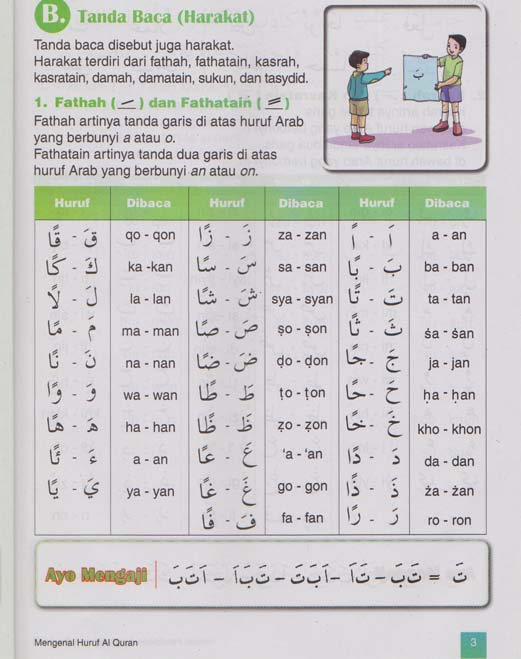 B. Tanda Baca (Harakat)
Tanda baca disebut juga harakat.
Harakat terdiri dari fathah, fathatain, kasrah,
kasratain, damah, damatain, sukun, dan tasydid.
بَ
1. Fathah ( ـَ ) dan Fathatain ( ـً )
Fathah artinya tanda garis di atas huruf Arab
yang berbunyi a atau o.
Fathatain artinya tanda dua garis di atas
huruf Arab yang berbunyi an atau on.
Huruf Dibaca Huruf Dibaca Huruf Dibaca
قَ - قًا qo - qon زَ - زًا za - zan اَ - اً a - an
كَ - كًا ka -kan سَ - سًا sa - san بَ - بًا ba - ban
لَ - لًا la - lan شَ - شًا sya - syan تَ - تًا ta - tan
مَ - مًا ma - man صَ - صًا ṣo - ṣon ثَ - ثًا ṡa - ṡan
نَ - نًا na - nan ضَ - ضًا ḍo - ḍon جَ - جًا ja - jan
وَ - وًا wa - wan طَ - طًا ṭo - ṭon حَ - حًا ḥa - ḥan
هَ - هًا ha - han ظَ - ظًا ẓo - ẓon خَ - خًا kho - khon
ءَ - ئًا a - an عَ - عًا 'a - 'an دَ - دًا da - dan
يَ - يًا ya - yan غَ - غًا go - gon ذَ - ذًا ża - żan
فَ - فًا fa - fan رَ - رًا ro - ron
Ayo Mengaji تَ = تَبَ - تَاَ - اَبَتَ - تَبَاَ - اَتَبَ
Mengenal Huruf Al Quran 3